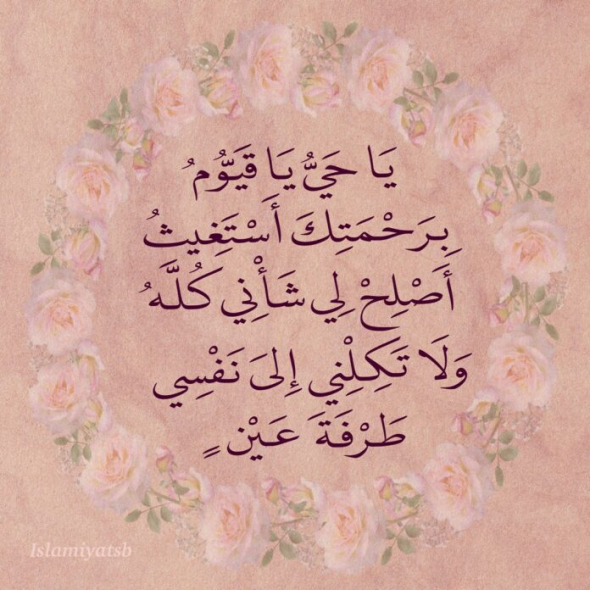 يَا حَيُّ يَا قَيُّوْمُ
بِرَحْمَتِكَ أَسْتَغِيثُ
أَصْلِحْ لِي شَأْنِي كُلَّهُ
وَلَا تَكِلْنِي إِلىَ نَفْسِي
طَرْفَةَ عَيْنٍ
Islamiyatsb